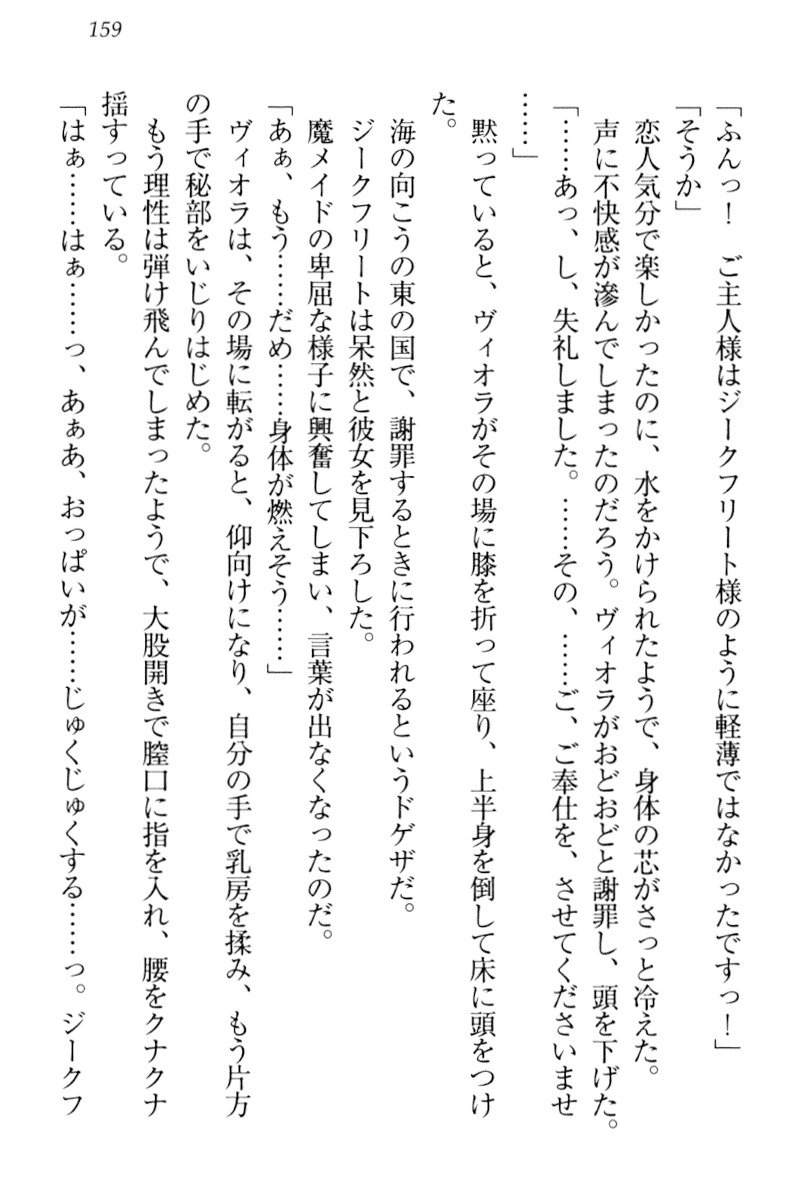 159
「ふんっ！　ご主人様はジークフリート様のように軽薄ではなかったですっ！」
「そうか」
　恋人気分で楽しかったのに、水をかけられたようで、身体の芯がさっと冷えた。
　声に不快感が滲んでしまったのだろう。ヴィオラがおどおどと謝罪し、頭を下げた。
「……あっ、し、失礼しました。……その、……ご、ご奉仕を、させてくださいませ
……」
　黙っていると、ヴィオラがその場に膝を折って座り、上半身を倒して床に頭をつけ
た。
　海の向こうの東の国で、謝罪するときに行われるというドゲザだ。
　ジークフリートは呆然と彼女を見下ろした。
　魔メイドの卑屈な様子に興奮してしまい、言葉が出なくなったのだ。
「あぁ、もう……だめ……身体が燃えそう……」
　ヴィオラは、その場に転がると、仰向けになり、自分の手で乳房を揉み、もう片方
の手で秘部をいじりはじめた。
　もう理性は弾け飛んでしまったようで、大股開きで膣口に指を入れ、腰をクナクナ
揺すっている。
「はぁ……はぁ……っ、あぁあ、おっぱいが……じゅくじゅくする……っ。ジークフ